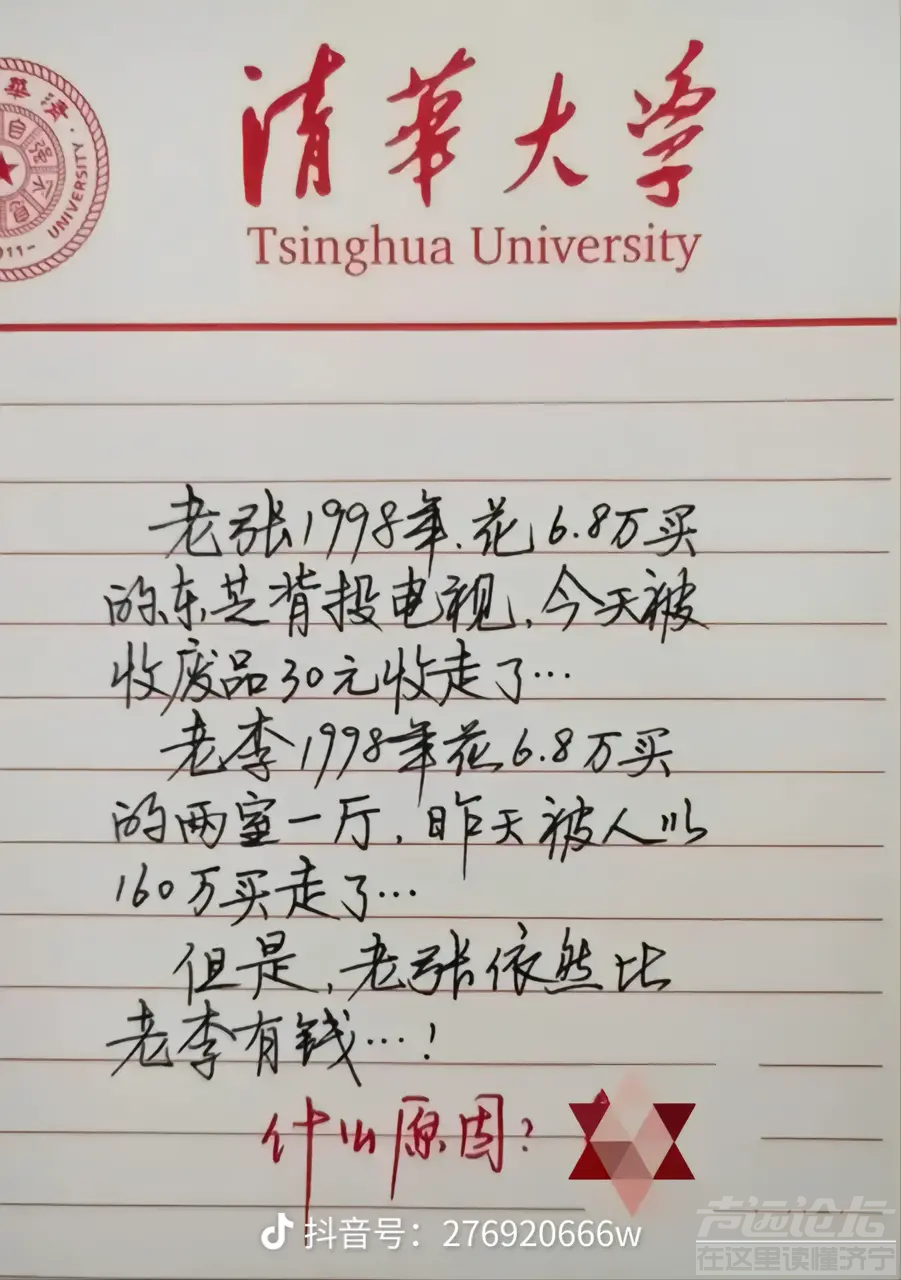 清華大学
Tsinghua University
華清
自强不息
UNIVERSITY
911-
老张1998年.花6.8万买
的东芝背投电视,今天被
收废品30元收走了…
老李1998年花6.8万买
的两室一厅,昨天被人以
160万买走了…
但是,老张依然比
老李有钱…!
什么原因?
抖音号：276920666w
声远论坛
在这里读懂济宁